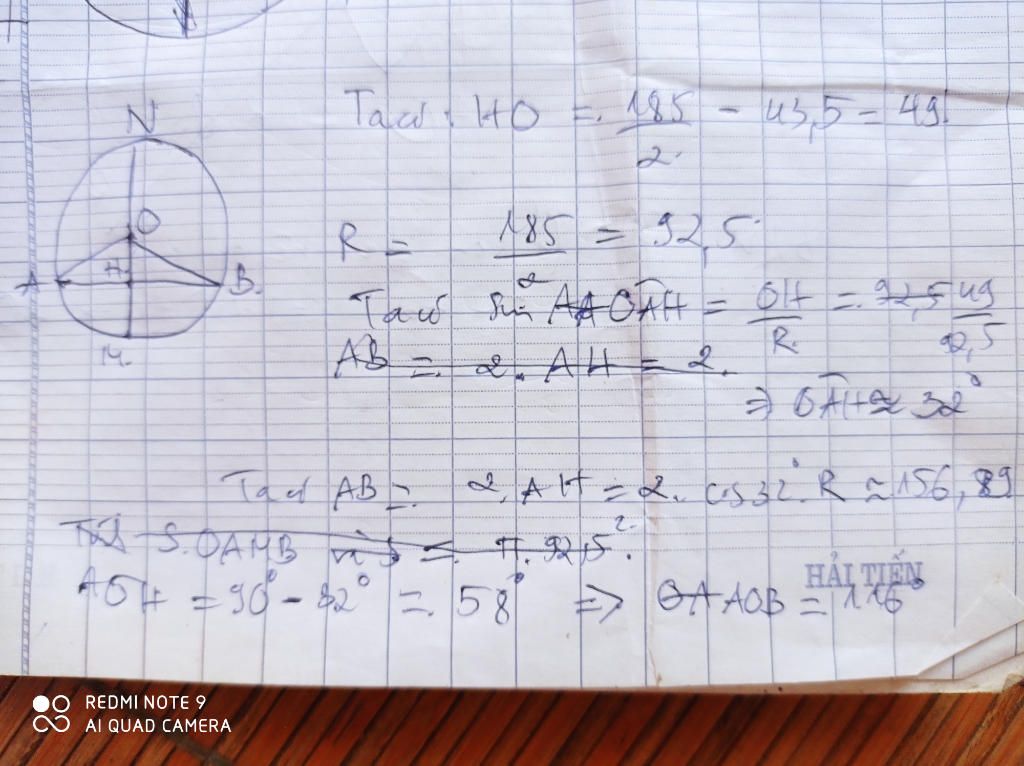 N
O
A H B.
M.
Ta có: HO = 185/2 - 43,5 = 49
R = 185/2 = 92,5
Ta có sin OAH = OH/R = 49/92,5
AB = 2. AH = 2.
⇒ OAH ≈ 32°
Ta có AB = 2. AH = 2. cos32°. R ≈ 156,89
S.OAMB π. 92,5².
AOH = 90° - 32° = 58° ⇒ AOB = 116°
HẢI TIẾN
REDMI NOTE 9
AI QUAD CAMERA